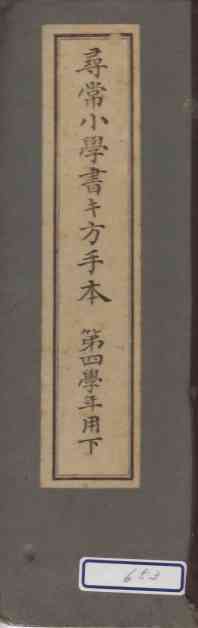 尋常小學書キ方手本 第四學年用下